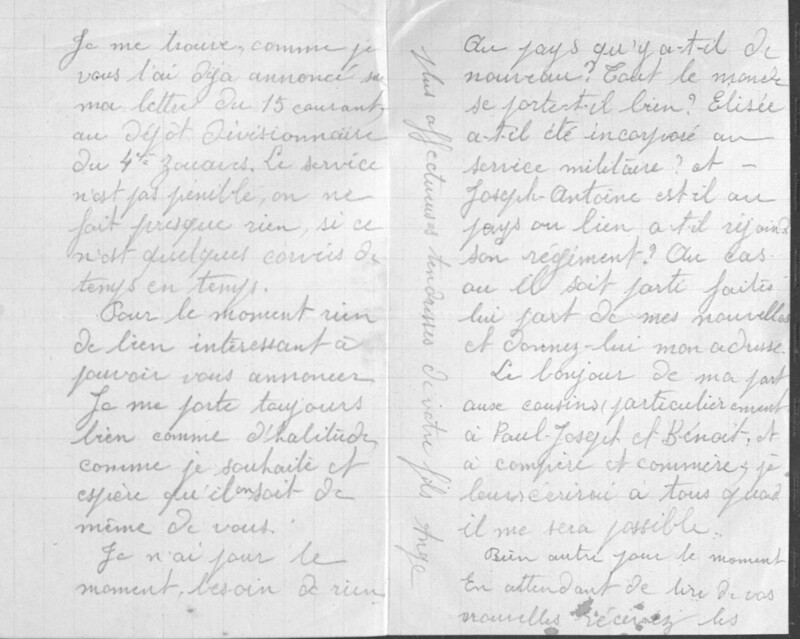 Je me trouve, comme je
vous l'ai déja annoncé sur
ma lettre du 15 courant,
au dépôt divisionnaire
du 4me zouaves. Le service
n'est pas pénible, on ne
fait presque rien, si ce
n'est quelques corvées de
temps en temps.
Pour le moment rien
de bien intéressant à
pouvoir vous annoncer
Je me porte toujours
bien comme d'habitude,
comme je souhaite et
espère qu'il en soit de
même de vous.
Je n'ai pour le
moment, besoin de rien
Au pays qu'y a-t-il de
nouveau? Tout le monde
se porte-t-il bien? Elisée
a-t-il été incorporé au
service militaire? et -
Joseph-Antoine est-il au
pays ou bien a-t-il rejoint
son régiment? Au cas
ou il soit parti faites-
lui part de mes nouvelles
et donnez-lui mon adresse.
Le bonjour de ma part
aux cousins, particulièrement
à Paul-Joseph et Benoit, et
à compère et commère, je
leur écrirai à tous quand
il me sera possible.
Rien autre pour le moment
En attendant de lire de vos
nouvelles recevez les
plus affectueuses tendresses de votre fils Ange